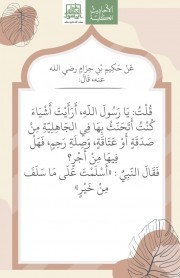 الأحاديث
الكلية
عَنْ حَكِيمِ بْنِ حِزَامٍ رضي الله
عنه، قَالَ:
قُلْتُ: يَا رَسُولَ اللَّهِ، أَرَأَيْتَ أَشْيَاءَ
كُنْتُ أَتَحَنَّثُ بِهَا فِي الجَاهِلِيَّةِ مِنْ
صَدَقَةٍ أَوْ عَتَاقَةٍ، وَصِلَةِ رَحِمٍ، فَهَلْ
فِيهَا مِنْ أَجْرٍ؟
فَقَالَ النَّبِيُّ : «أَسْلَمْتَ عَلَى مَا سَلَفَ
مِنْ خَيْرٍ»